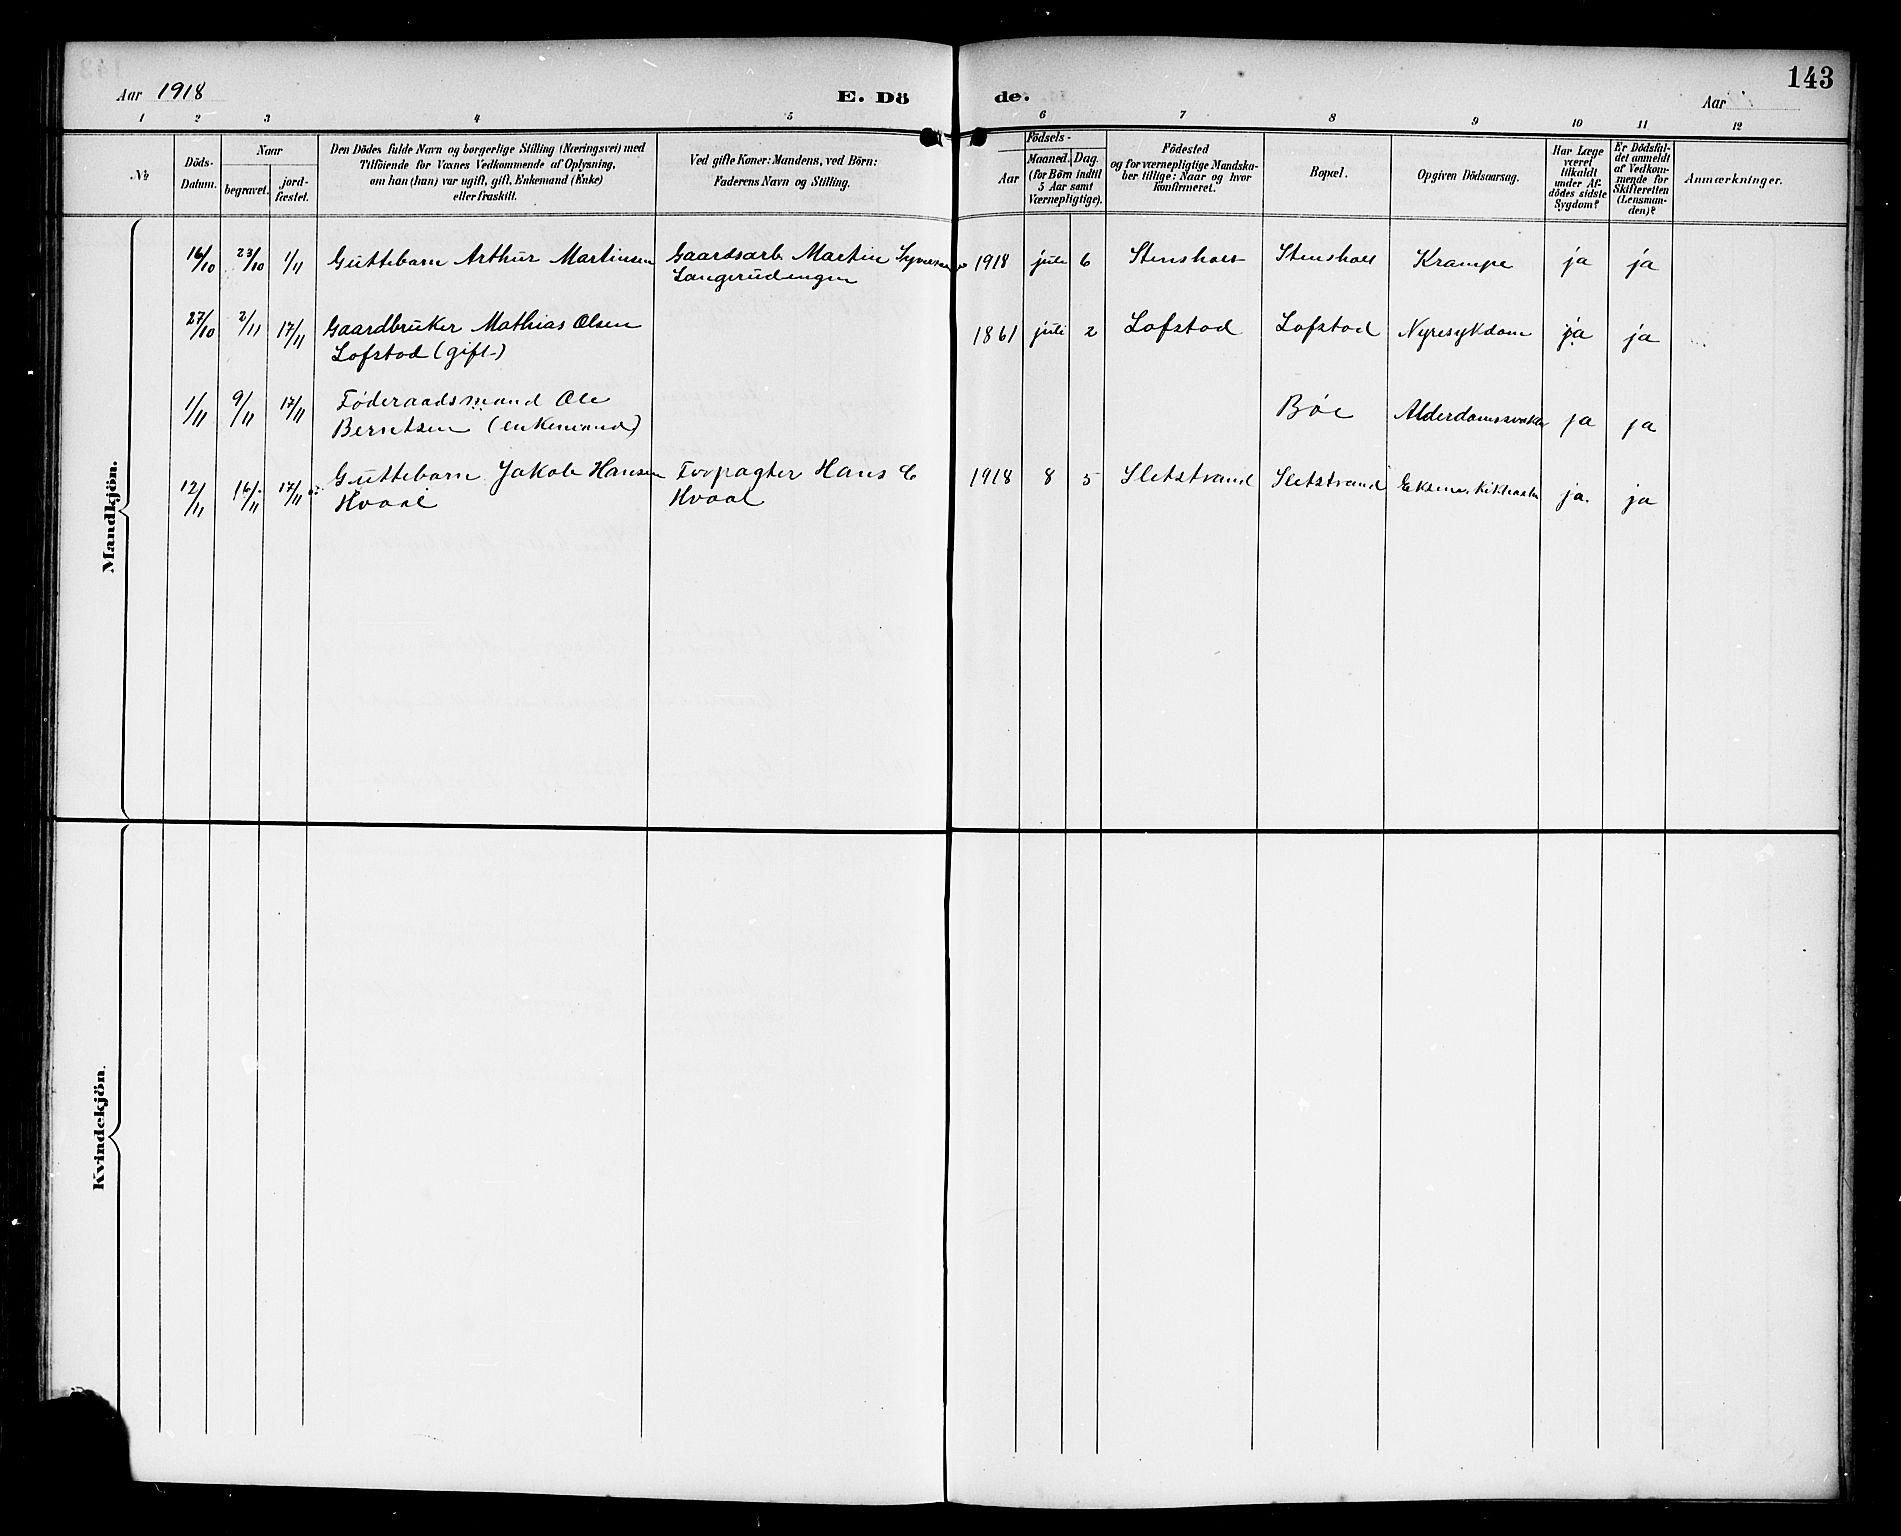 143
Aar 1918
E. Dö
de.
Aar
1 2 3 4 5 6 7 8 9 10 11 12
№
Döds-
Datum.
Naar
begravet.
jord-
fæstet.
Den Dödes fulde Navn og borgerlige Stilling (Næringsvei) med
Tilföiende for Voxnes Vedkommende af Oplysning,
om han (hun) var ugift, gift, Enkemand (Enke)
eller fraskilt.
Ved gifte Koner: Mandens, ved Börn:
Faderens Navn og Stilling.
Födsels-
Aar
Maaned.
Dag.
(for Börn indtil
5 Aar samt
Værnepligtige).
Födested
og for værnepligtige Mandska-
ber tillige: Naar og hvor
konfirmeret.
Bopæl.
Opgiven Dödsaarsag.
Har Læge
været
tilkaldt
under Af-
dödes sidste
Sygdom?
Er Dödsfal-
det anmeldt
af Vedkom-
mende for
Skifteretten
(Lensman-
den)?
Anmærkninger.
Mandkjön.
16/10 23/10 1/11 Guttebarn Arthur Martinsen Gaardsarb. Martin 1918 juli 6 Krampe ja ja
Langerudengen
27/10 2/11 17/11 Gaardbruker Mathias Olsen 1861 juli 2 Lofstad Lofstad Nyresykdom ja ja
Lofstad (gift)
1/11 9/11 17/11 Føderaadsmand Ole Bøe ja ja
Berntsen (enkemand)
12/11 16/11 17/11 Guttebarn Jakob Hansen Forpagter Hans 1918 8 5 Sletstrand Sletstrand ja. ja
Hvaal Hvaal
Kvindekjön.